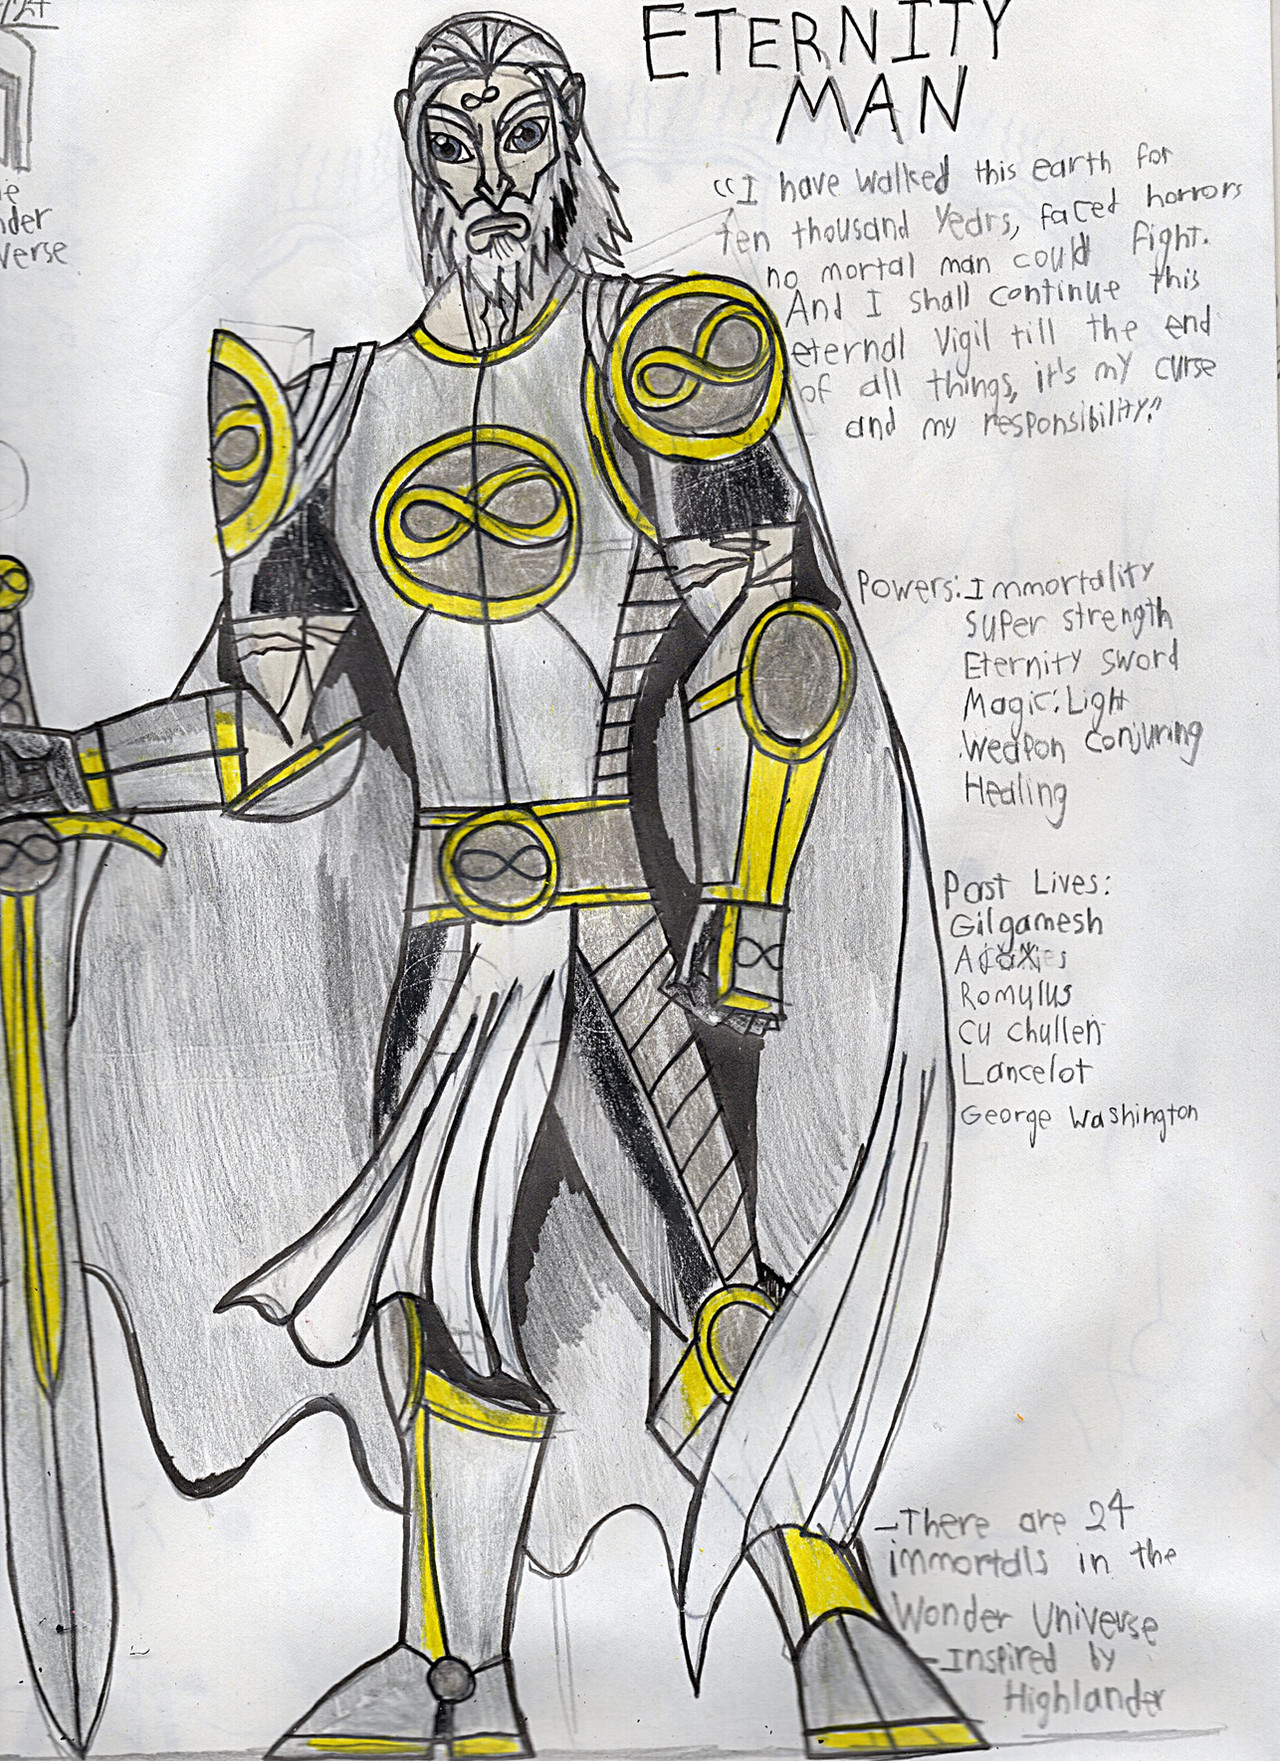 ETERNITY
MAN
"I have walked this earth for
ten thousand years, faced horrors
no mortal man could fight.
And I shall continue this
eternal vigil till the end
of all things, it's my curse
and my responsibility."
Powers: Immortality
Super strength
Eternity sword
Magic: Light
Weapon conjuring
Healing
Past Lives:
Gilgamesh
Romulus
Cu Chullen
Lancelot
George Washington
-There are 24
immortals in the
Wonder Universe
-Inspired by
Highlander
nder
verse